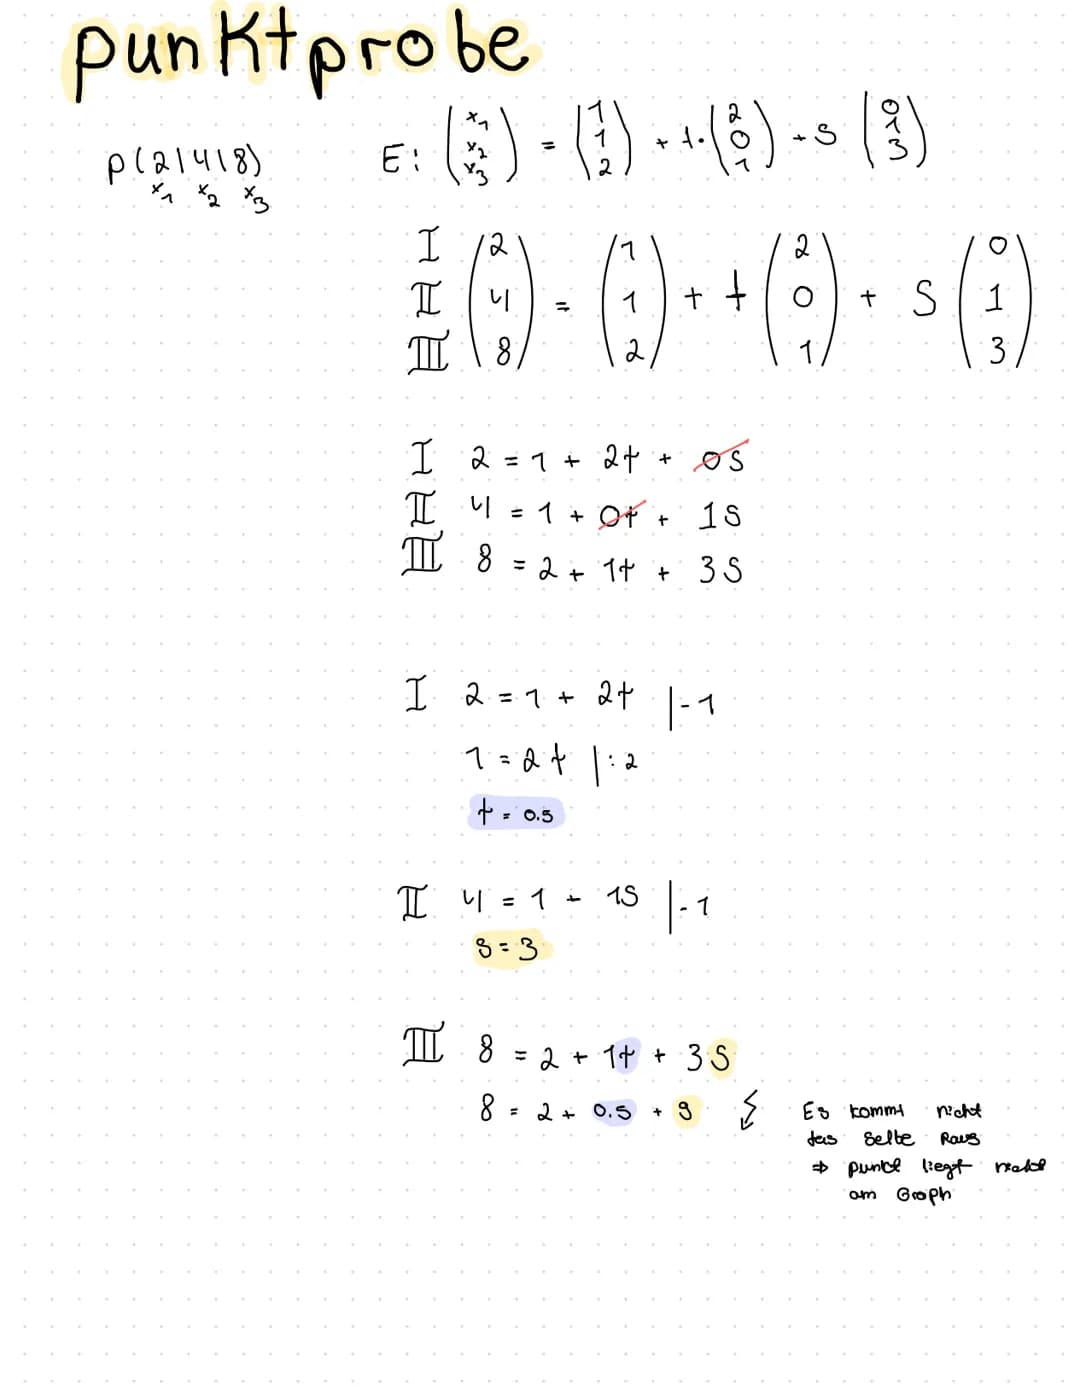 punktprobe
P(2|4|8)
x1 x2 x3
E: (x1 x2 x3) = (1 1 2) + t·(2 0 1) + s (0 1 3)
I (2) = (1) + t (2) + s (0)
II (4) = (1) + t (0) + s (1)
III (8) = (2) + t (1) + s (3)
I 2 = 1 + 2t + 0s
II 4 = 1 + 0t + 1s
III 8 = 2 + 1t + 3s
I 2 = 1 + 2t |-1
1 = 2t |:2
t = 0.5
II 4 = 1 + 1s |-1
s = 3
III 8 = 2 + 1t + 3s
8 = 2 + 0.5 + 9
Es kommt nicht
das selbe Raus
⇒ punkt liegt nicht
am Graph